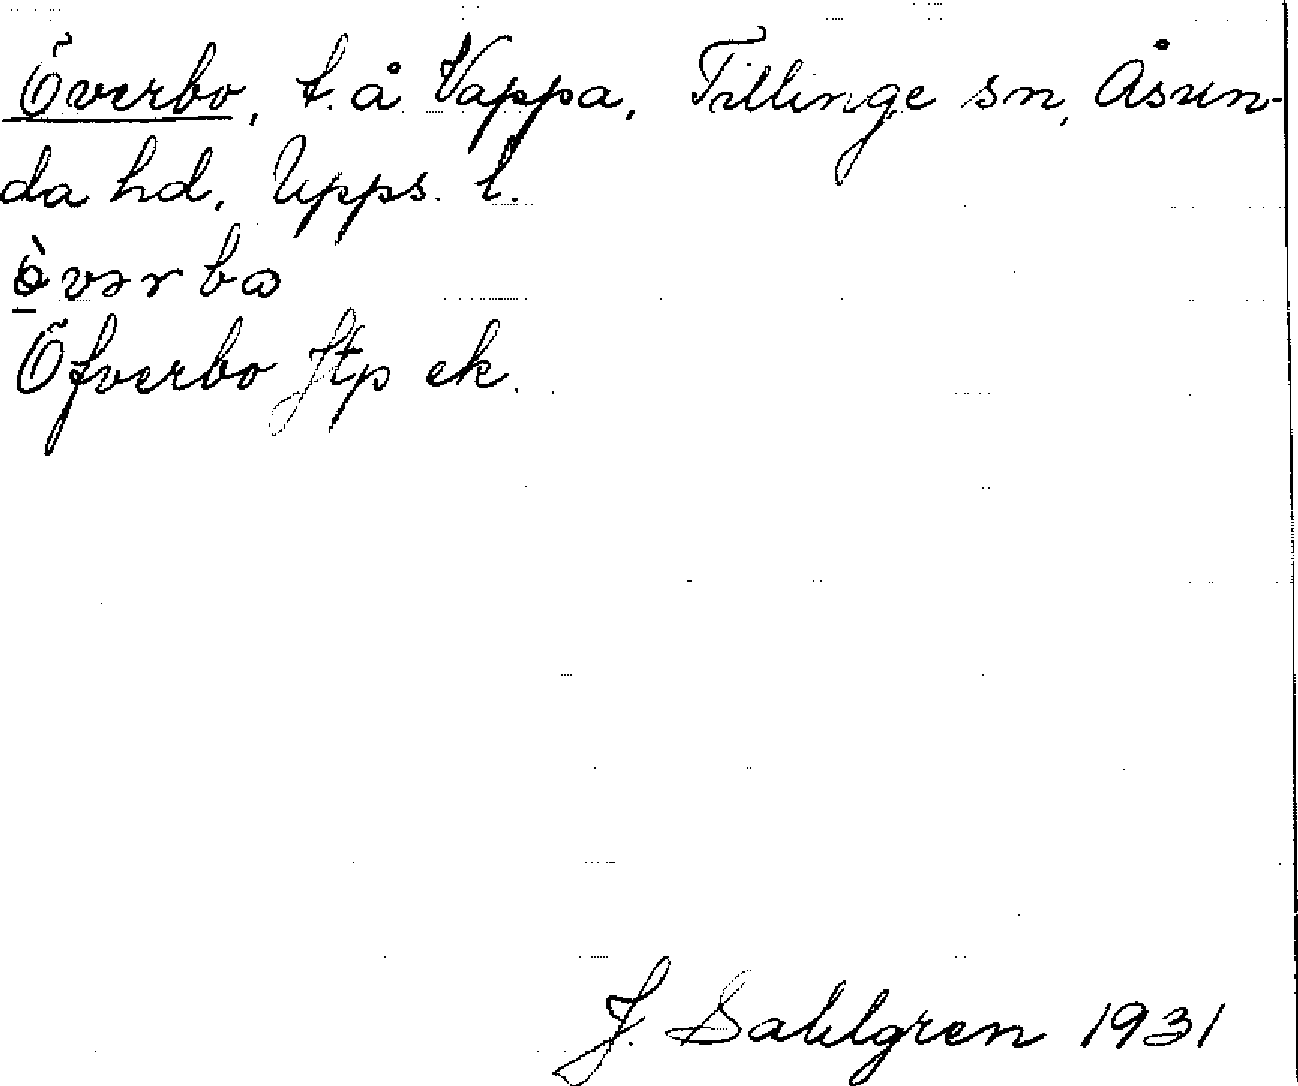 Överbo, t. å Vappa, Tillinge sn, Åsun-
da hd, Upps. l.
Öfverbo Jtp ek.
J. Sahlgren 1931